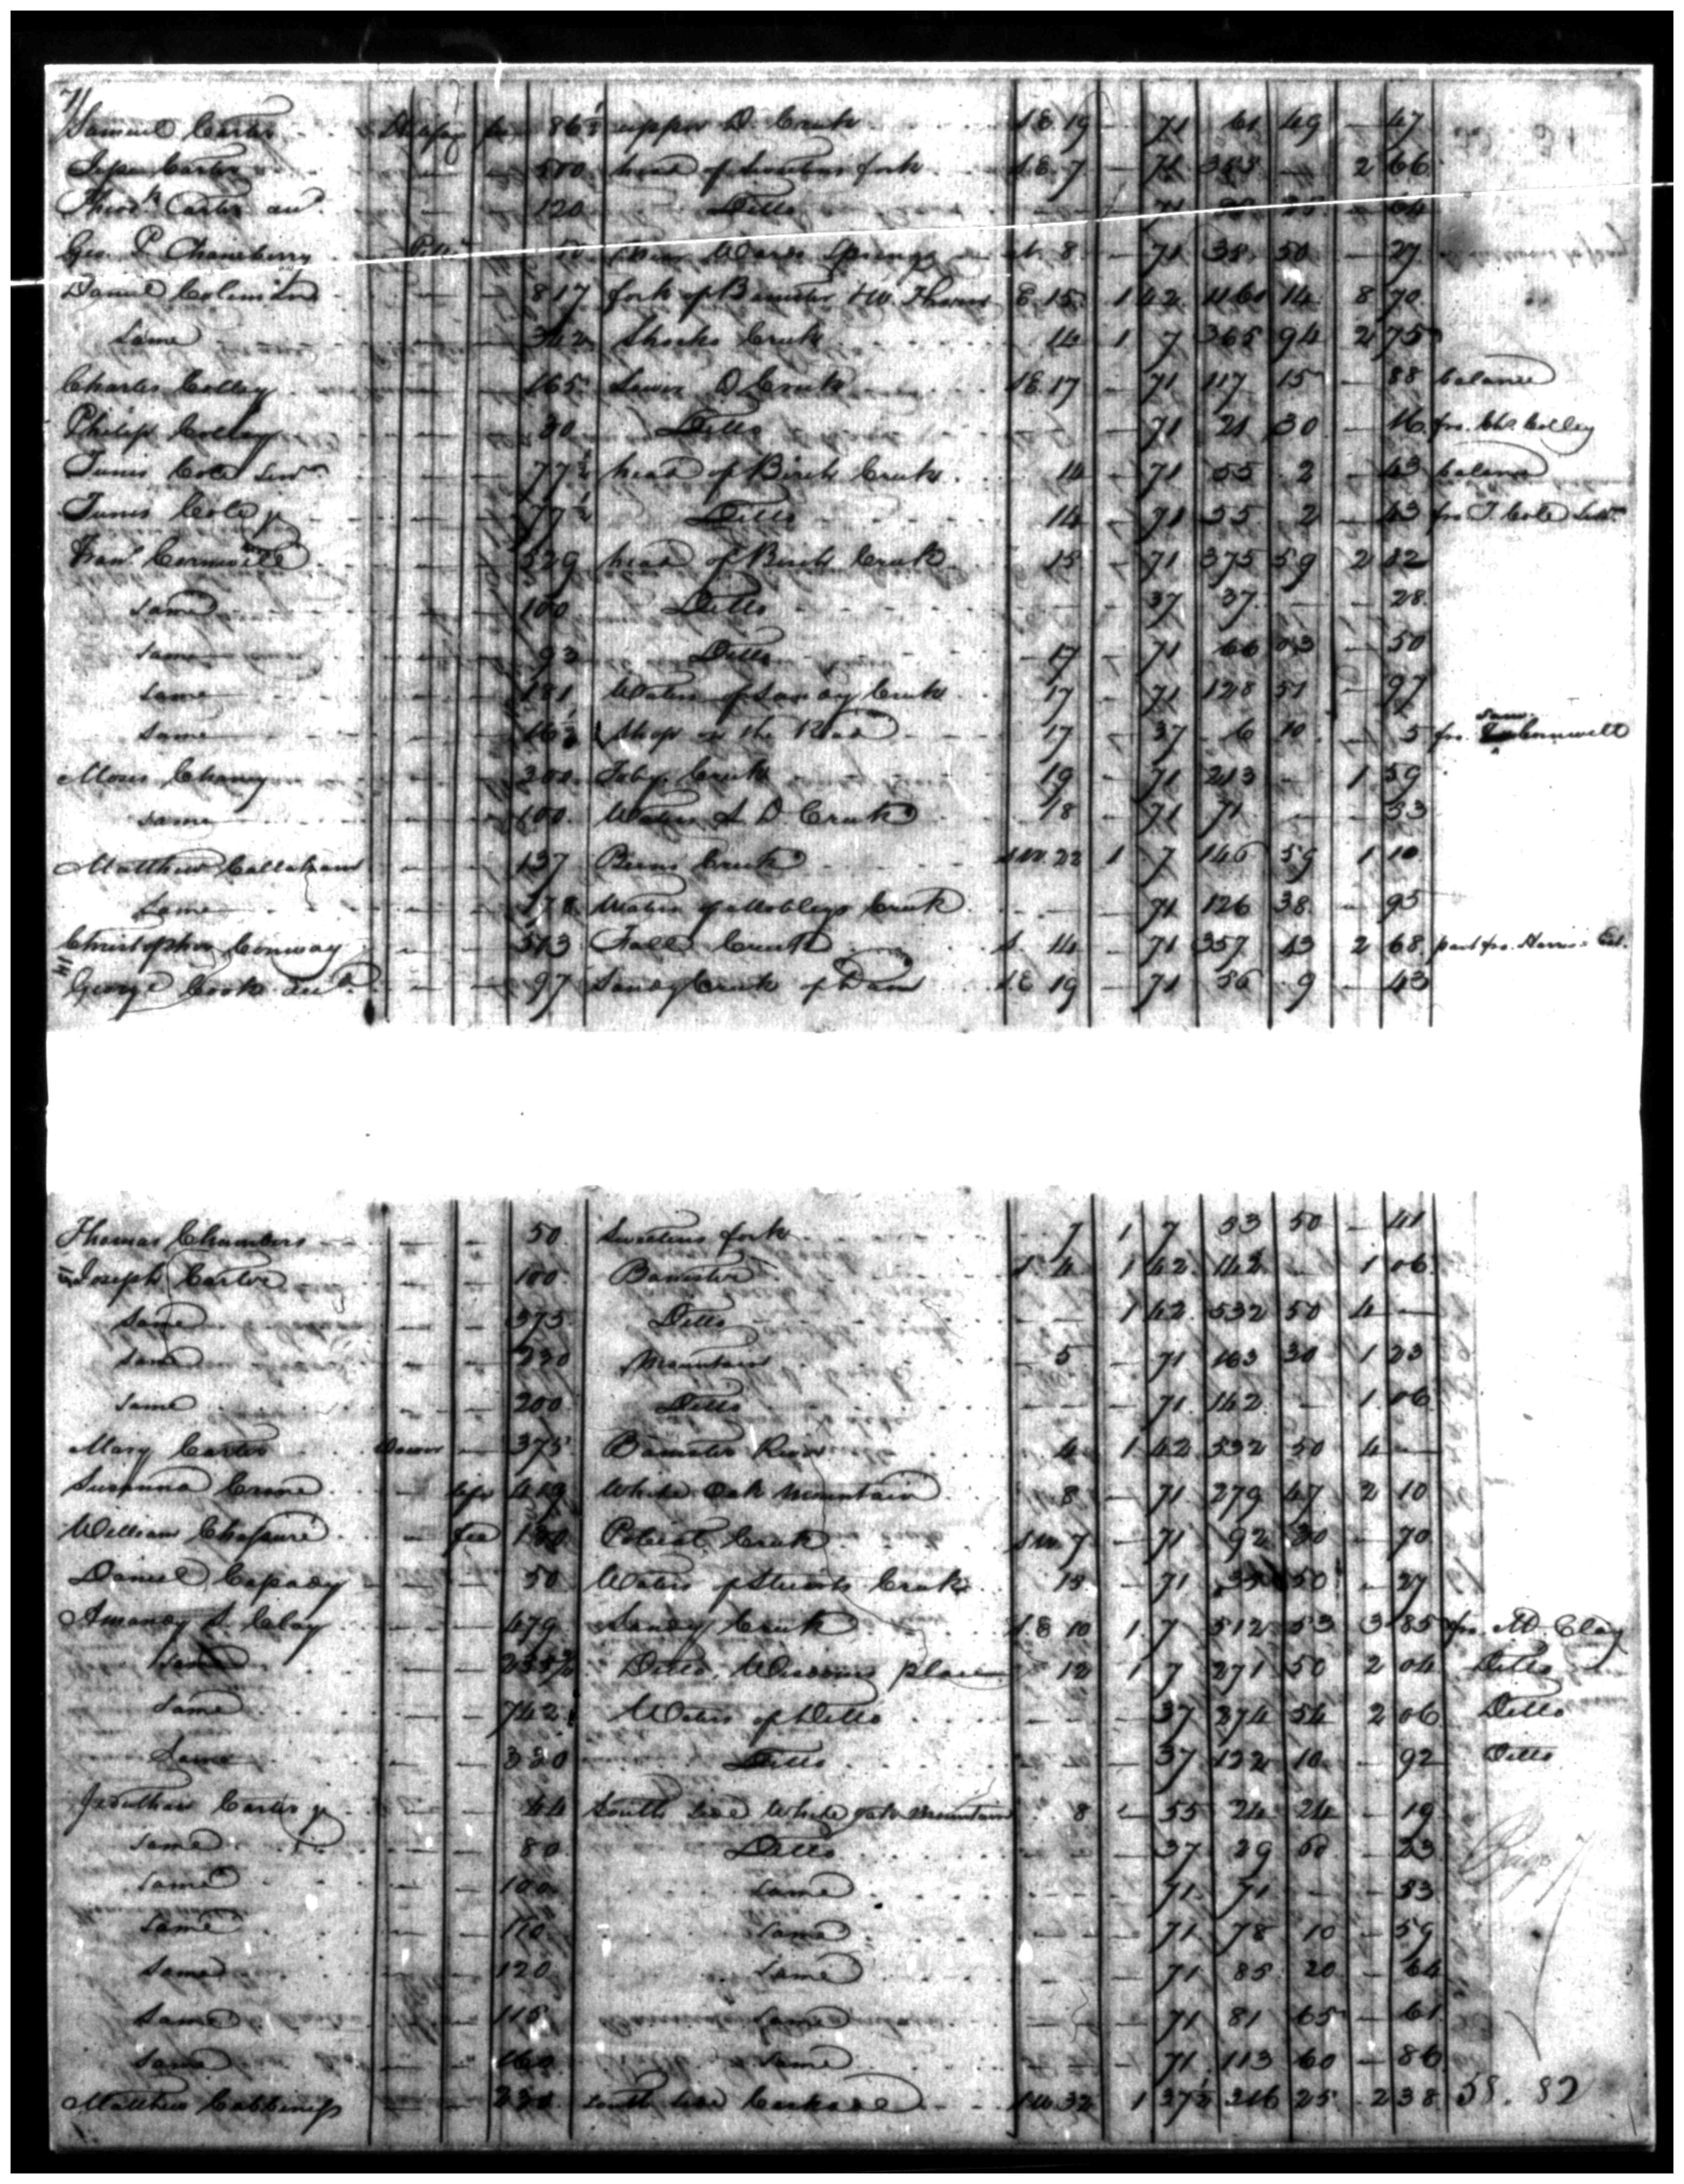 7/
Samuel Carter Halifax fee 86½ upper D. Creek S E 19 — 71 61 49 — 47
Jesse Carter — — 500 head of Sweetens fork S E 7 — 71 355 — 2 66
Theodk Carter — — 120 Ditto — — 71 85 — 64
Geo. P. Chaneberry Pitta — 50 near Wards Springs N 8 — 71 35 50 — 27
Daniel Coleman — — 817 fork of Banister E 15 1 42 1160 14 8 70
Same — — 342 Shocko Creek 14 1 7 365 94 2 75
Charles Colley — — 165 Lower D Creek S E 17 — 71 117 15 — 88 balance
Philip Colley — — 30 Ditto — — 71 21 30 — 16 fro. Chs. Colley
Tunis Cole Senr — — 77½ head of Birch Creek 14 — 71 55 2 — 43 balance
Tunis Cole jr — — 77½ Ditto 14 — 71 55 2 — 43 fro T. Cole Senr
Cornwell — — 529 head of Birch Creek 15 — 71 375 59 2 82
same — — 100 Ditto — — 37 37 — — 28
same — — 93 Ditto 17 — 71 66 03 — 50
same — — 181 Waters of Sandy Creek 17 — 71 128 51 — 97
same — — 16½ Shop on the Road 17 — 37 6 10 — 5 fro. Sam. Cornwell
Moses Chaney — — 300 Toby Creek 19 — 71 213 — 1 59
same — — 100 Waters S. D. Creek 18 — 71 71 — — 53
Matthew Callaham — — 137 Beens Creek S W 22 1 7 146 59 1 10
Same — — 178 Waters of Mobleys Creek — — 71 126 38 — 95
Christopher Conway — — 503 Fall Creek S. 14 — 71 357 13 2 68 part fro. Harris Est.
George Cook — — 97 Sandy Creek of Dan S E 19 — 71 56 9 — 43
Thomas Chambers — — 50 Sweetens fork 7 1 7 53 50 — 41
Joseph Carter — — 100 Banister S 4 1 42 142 — 1 06
Same — — 375 Ditto — 1 42 532 50 4 —
Same — — 230 Mountain 5 — 71 163 30 1 23
Same — — 200 Ditto — — 71 142 — 1 06
Mary Carter Dower — 375 Banister River 4 1 42 532 50 4 —
Susanna Crane — life 419 White Oak Mountain 8 — 71 279 47 2 10
William — fee 130 Polecat Creek S W 7 — 71 92 30 — 70
Daniel — — 50 Waters of Stewarts Creek 15 — 71 35 50 — 27
Amanay S. Clay — — 479 Sandy Creek S E 10 1 7 512 53 3 85 fro. M. Clay
Same — — Ditto, place 12 1 7 271 50 2 04 Ditto
Same — — 742 Waters of Ditto — — 37 274 54 2 06 Ditto
Same — — 330 Ditto — — 37 122 10 — 92 Ditto
Jeduthan Carter jr — — 44 South side White oak Mountain 8 — 55 24 24 — 19
Same — — 80 Ditto — — 37 29 60 — 23
Same — — 100 same — — 71 71 — — 53
Same — — 110 Same — — 71 78 10 — 59
Same — — 120 Same — — 71 85 20 — 64
Same — — 115 Same — — 71 81 65 — 61
Same — — 160 Same — — 71 113 60 — 86
Matthew — — 230 South side Cascade S W 32 1 37½ 316 25 2 38 58. 82